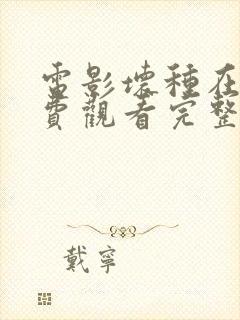 電影壞種在
費觀看完整
戴寧